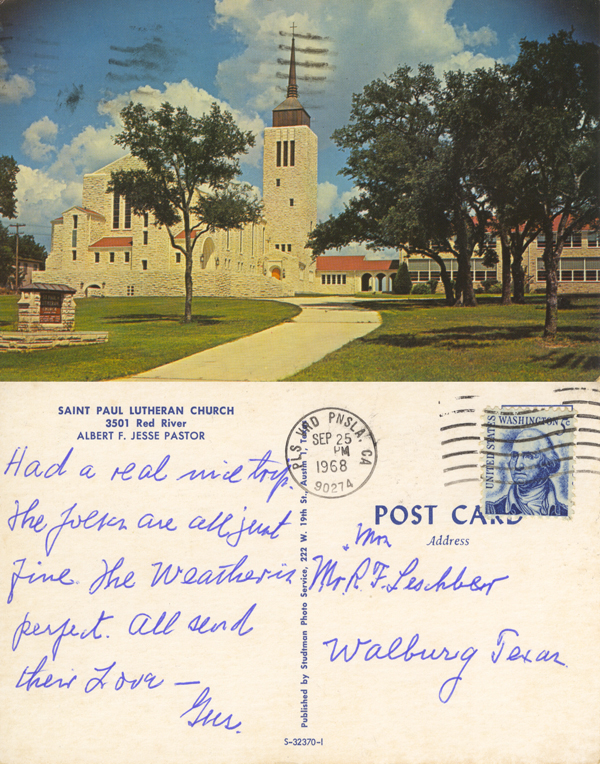 SAINT PAUL LUTHERAN CHURCH
3501 Red River
ALBERT F. JESSE PASTOR
Had a real nice trip.
The folks are all just
fine. The Weather is
perfect. All send
their Love —
Gus.
PLS VRD PNSLA. CA
SEP 25
PM
1968
90274
UNITED STATES
WASHINGTON 5c
POST CARD
Address
Mrs
Mr. R. F. Leschber
Walburg Texas.
Published by Studtman Photo Service, 222 W. 19th St., Austin 1, Texas
S-32370-1